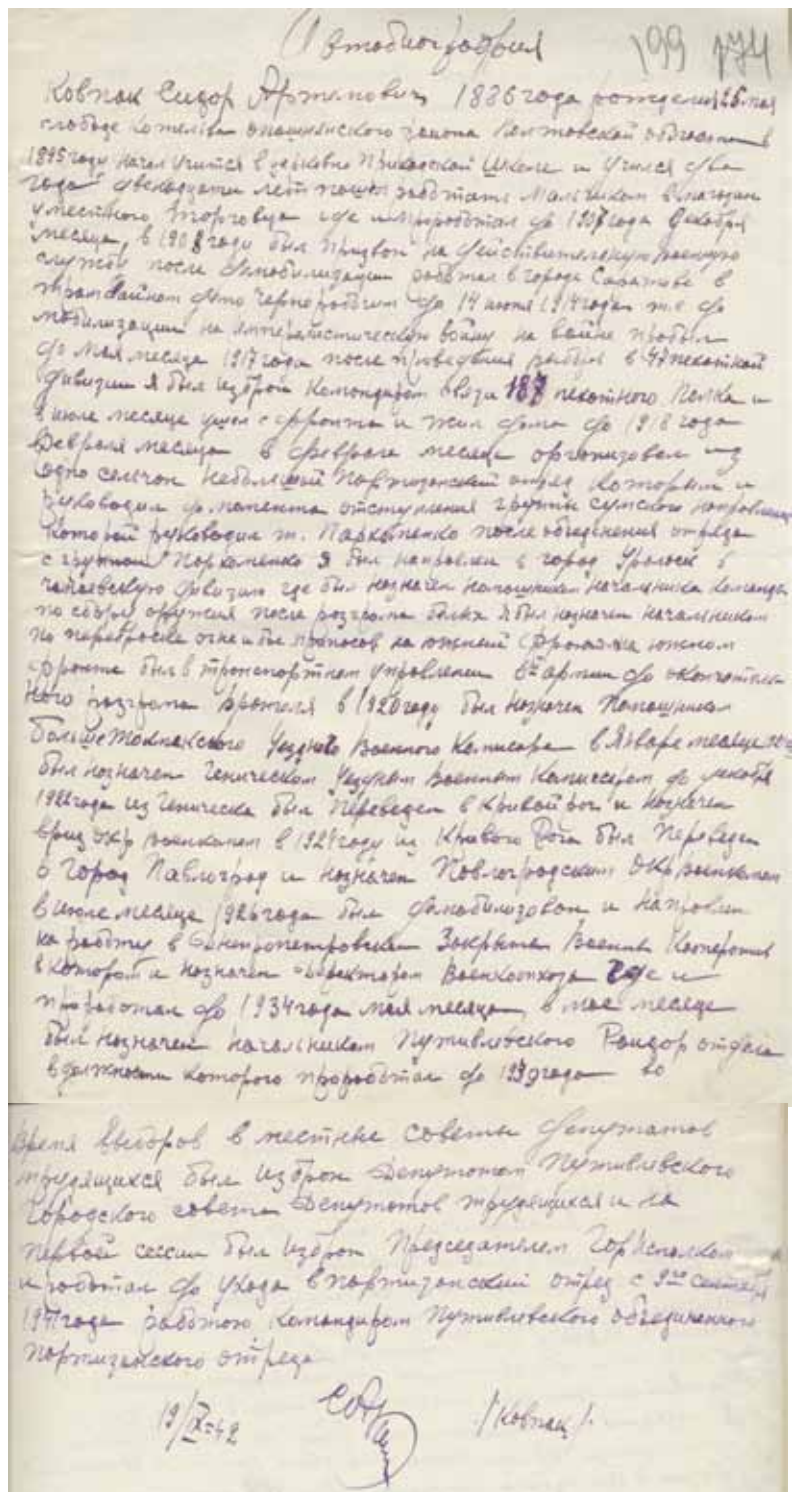 Автобиография
199 174
Ковпак Сидор Артемович 1886 года рождения 25 мая
слободе Котельва опошнянского района Полтавской области в
1895 году начал учится в церковно Приходской Школе и учился два
года двенадцати лет пошел работать Мальчиком в магазин
у местного торговца где и проработал до 1907 года Декабря
месяца, в 1908 году был призван на действителную военную
службу после демобилизации работал в городе Саратове в
трамвайном депо Чернорабочим до 14 июля 1914 года т.е до
мобилизации на империлистическую войну на войне пробыл
до Мая месяца 1917 года после в 47 пехотной
дивизии Я был избран Командиром связи 187 пехотного Полка и
в июле месяце ушел с фронта и жил дома до 1918 года
Февраля месяца в феврале месяце организовал из
одно селчан небольшой Партизанский отряд которым и
руководил до момента отступления группы сумского направления
которой руководил т. Пархоменко после обеденения отряда
с групой Пархоменко Я был направлен в город Уральск в
чапаевскую дивизию где был назначен помошником начальника Команды
по сбору оружия после розгрома белых Я был назначен начальником
по переброске огне и бое припасов на южный фронт на южном
фронте был в транспортном управлении 6й армии до окончатель
ного розгрома Врангеля в 1920 году был назначен Помошником
Больше Токмакского Уездного Военного Комисара в Январе месяце
был назначен Геническом Уездным Военным Комиссаром до декабря
1922 года из Геническа был Переведен в Кривой рог и назначен
врид окр военкомом в 1924 году из Кривого Рога был Переведен
в город Павлоград и назначен Повлоградским Окрвоенкомом
в июле месяце 1926 года был демобилизован и направлен
на работу в Днепропетровский Закрытый Военный Кооператив
в который и назначен директором Военкоопхоза где и
проработал до 1934 года мая месяца, в мае месяце
был назначен начальником Путивлевского Райдор отдела
в должности которого проработал до 1939 года во
время выборов в местные советы депутатов
трудящихся был избран Депутатом Путивлевского
Городского совета Депутатов трудящихся и на
первой сессии был избран Председателем Горисполкома
и работал до ухода в партизанский отряд с 9го сентября
1941 года работаю командиром Путивлевского объединенного
партизанского отряда
19/IX-42 /Ковпак/.